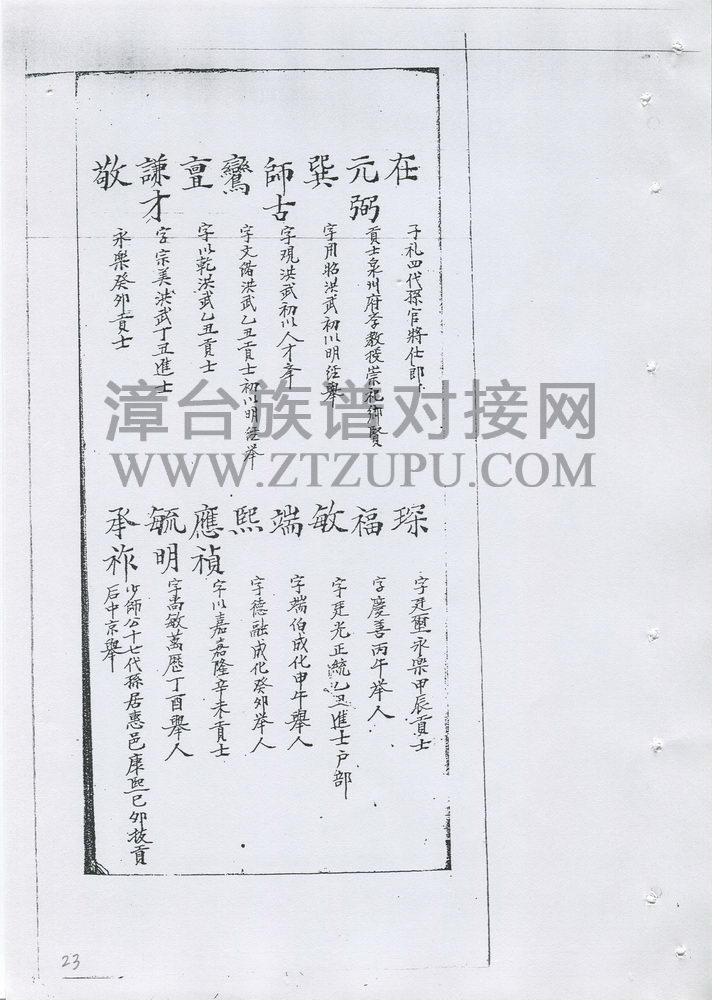 在
子礼四代孫官將仕郎
元弼
貢士泉州府学教授崇祀鄉賢
巽
字用昭洪武初以明经舉
師古
字現洪武初以人才辛
鸞
字文偕洪武乙丑貢士初以明经举
亶
字以乾洪武乙丑貢士
謙才
字宗美洪武丁丑進士
敬
永樂癸卯貢士
琛
字廷璽永楽甲辰貢士
福
字慶善丙午举人
敏
字廷光正統乙丑進士户部
端
字端伯成化甲午舉人
熙
字德融成化癸卯举人
應禎
字以嘉嘉隆辛未貢士
毓明
字尚敏萬歷丁酉舉人
承祚
少師公十七代孫居惠邑康熙己卯拔貢
后中京舉
漳台族谱对接网
WWW.ZTZUPU.COM
23